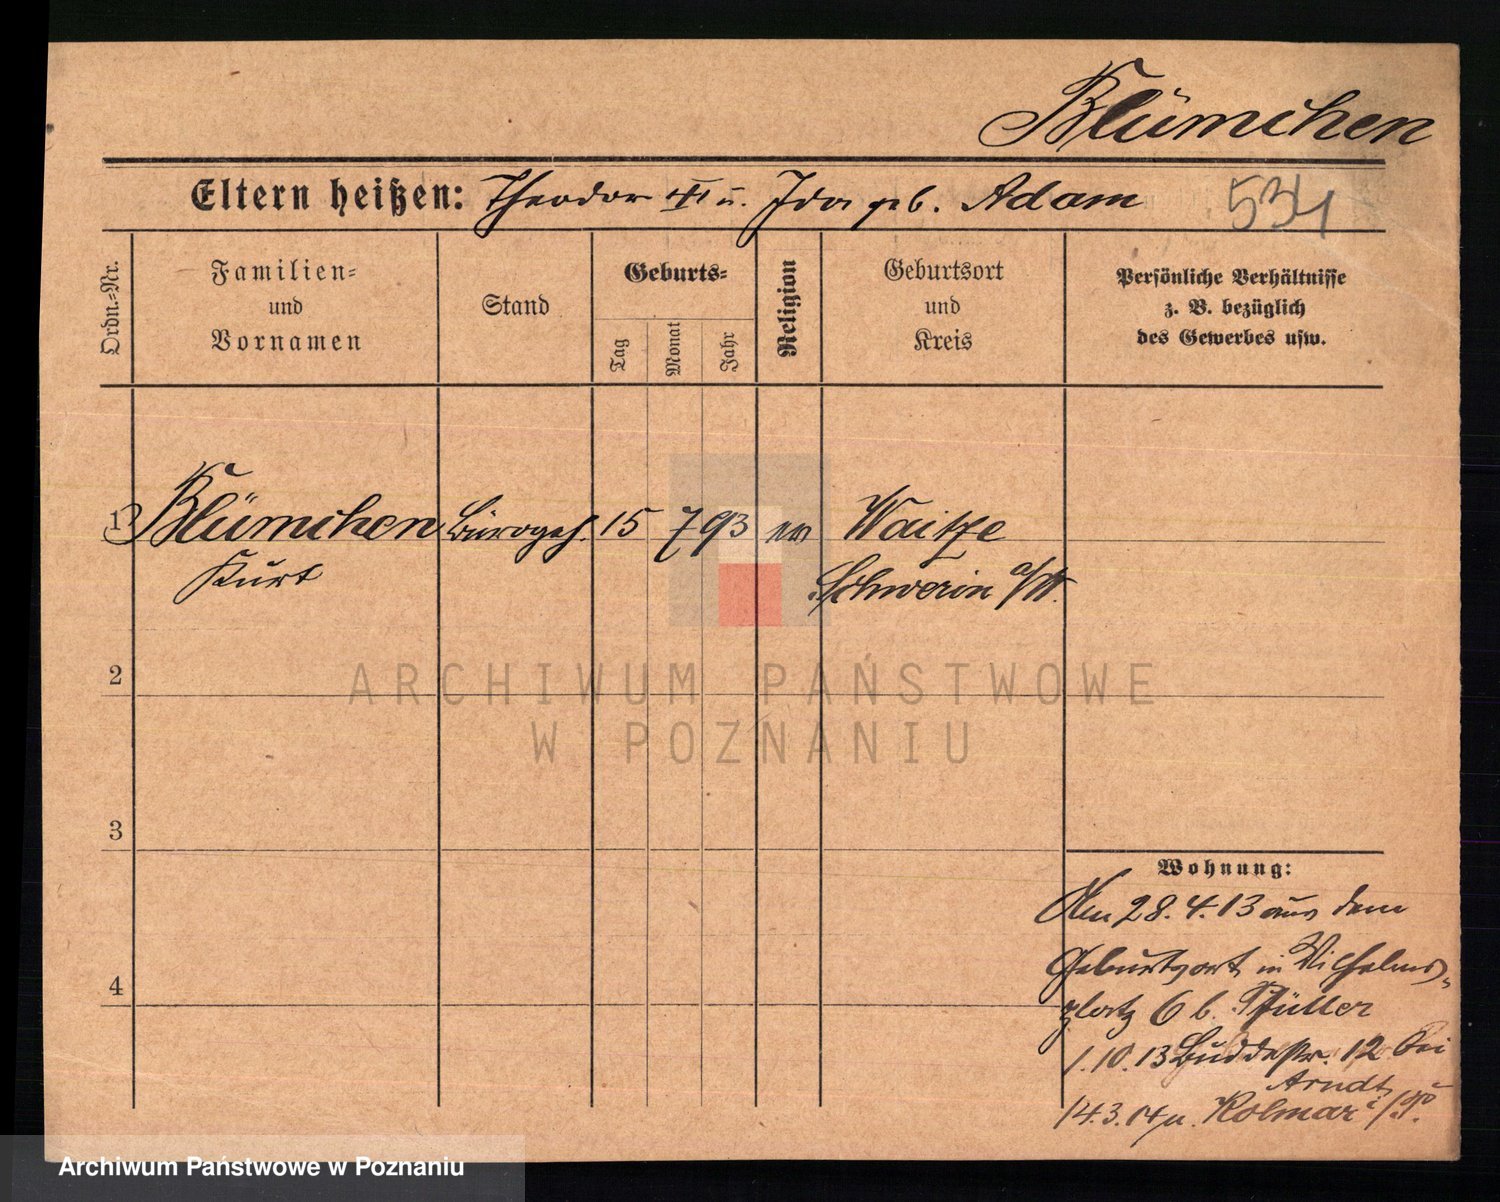 Blümchen
Eltern heißen: Theodor u. Ida geb. Adam
534
Ordn.-Nr.
Familien-
und
Vornamen
Stand
Geburts-
Tag
Monat
Jahr
Religion
Geburtsort
und
Kreis
Persönliche Verhältnisse
z. B. bezüglich
des Gewerbes usw.
1 Blümchen Bürogeh. 15 7 93 ev Waitze
Kurt Schwerin a/W.
2
3
4
Wohnung:
Am 28.4.13 aus dem
Geburtsort in Wilhelms-
platz 6 b. Müller
1.10.13 Buddestr. 12 bei
Arndt
14.3.14 n. Kolmar i/Po
ARCHIWUM PAŃSTWOWE
W POZNANIU
Archiwum Państwowe w Poznaniu